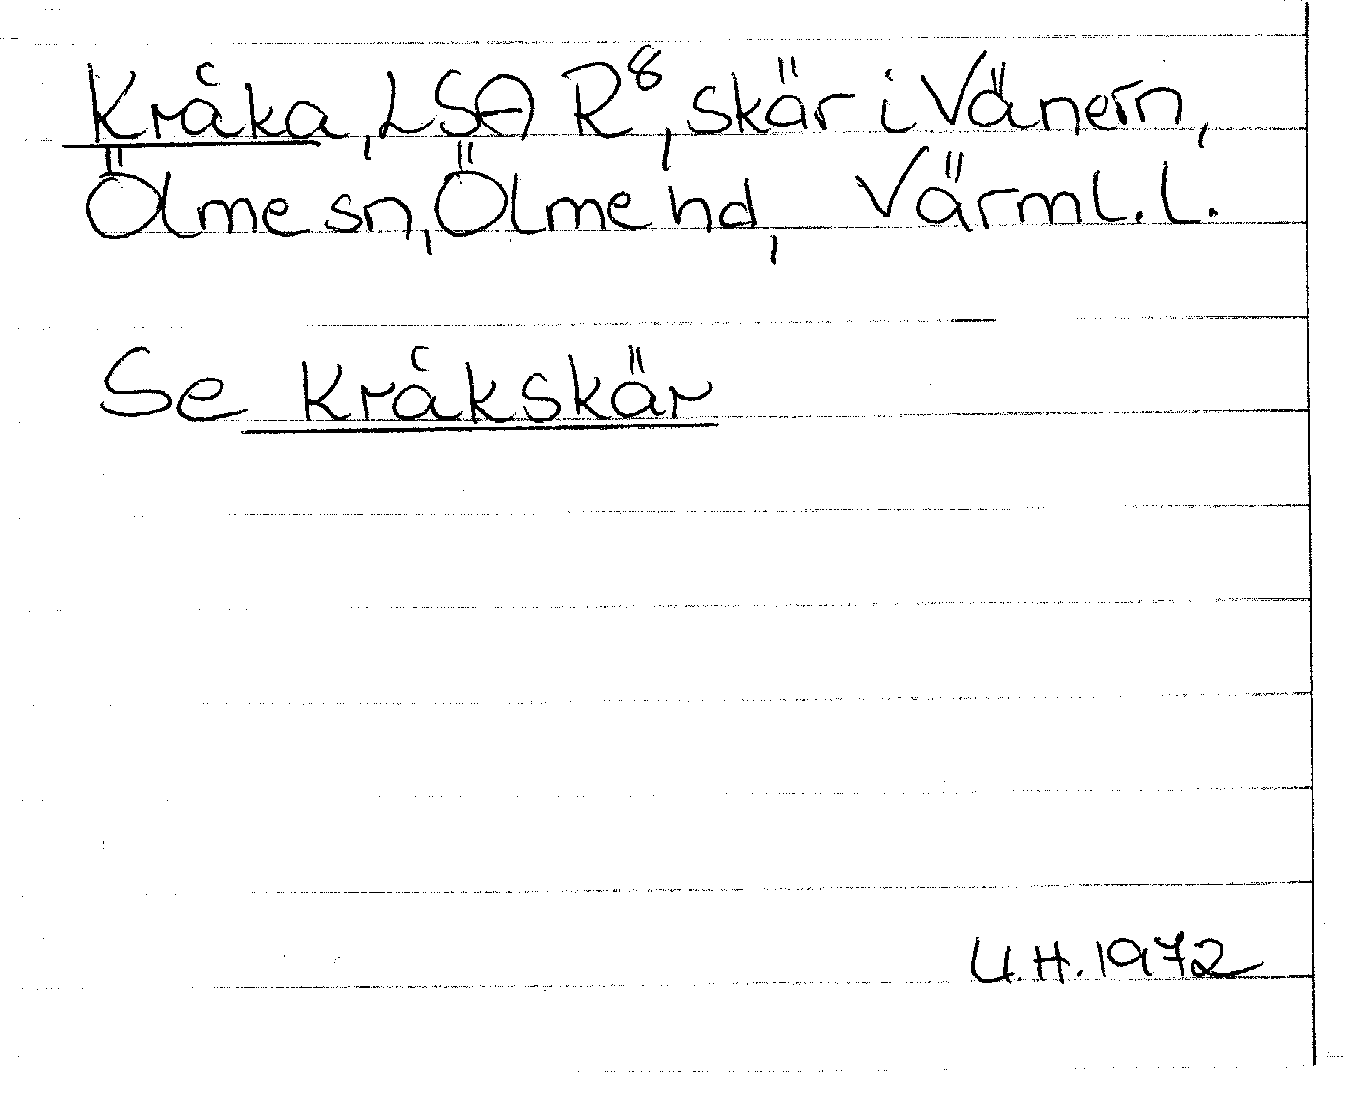 Kråka, LSA R8, skär i Vänern,
Ölme sn, Ölme hd, Värml. l.
Se Kråkskär
U.H. 1972